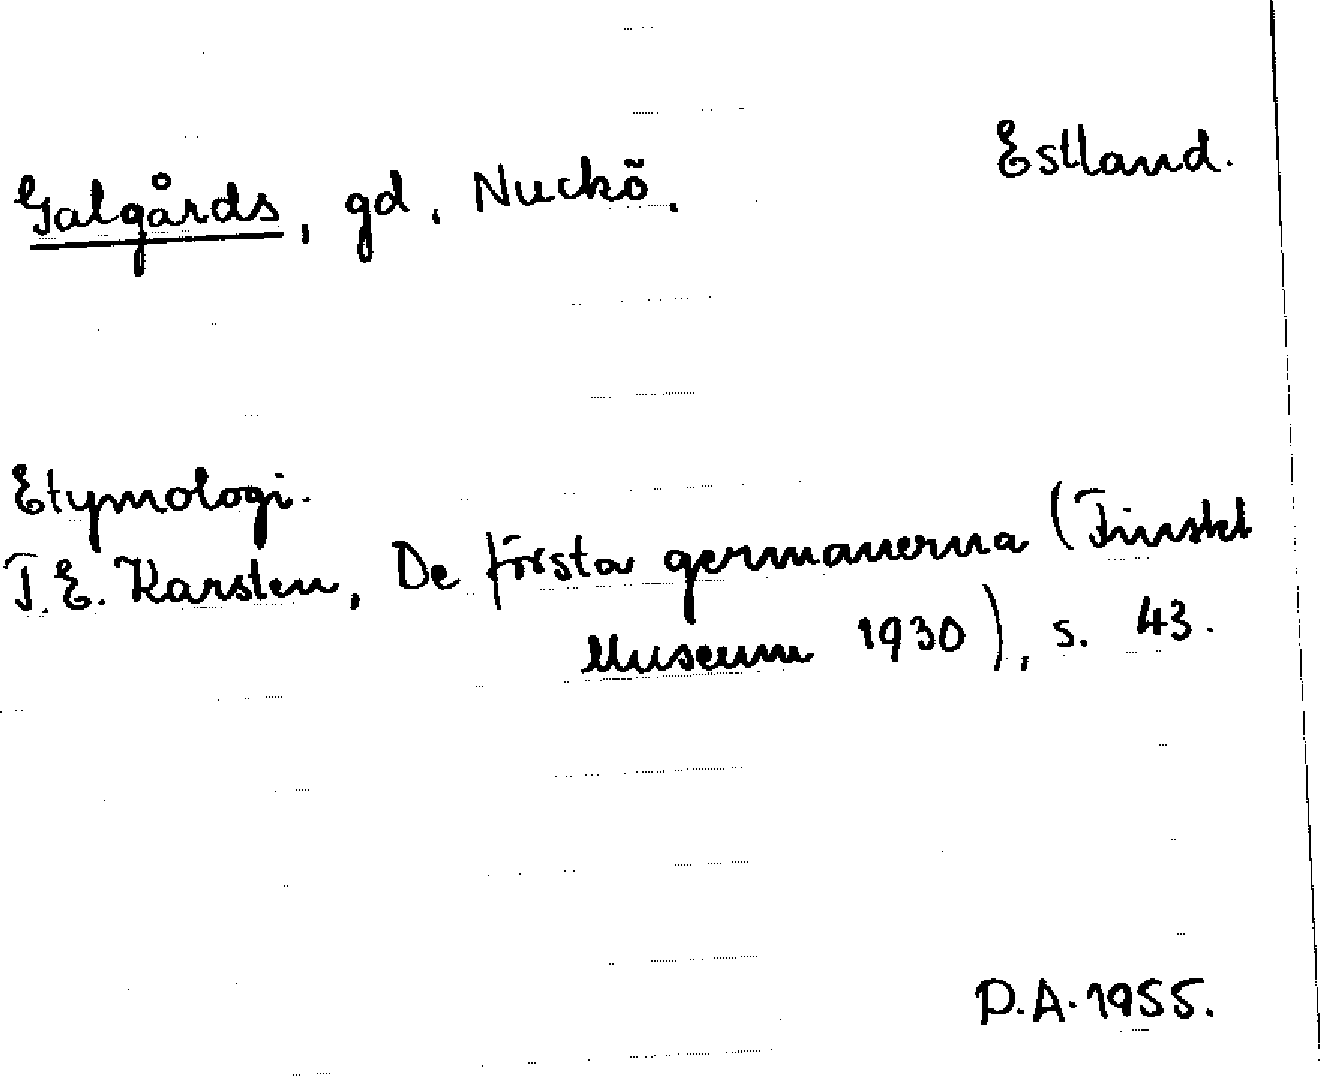 Estland.
Galgårds, gd. Nuckö.
Etymologi.
T.E. Karsten, De första germanerna (Finskt
Museum 1930), s. 43.
P.A. 1955.